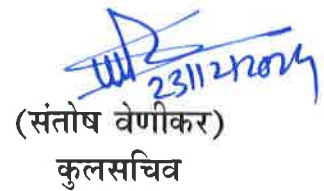 23/12/2024
(संतोष वेणीकर)
कुलसचिव